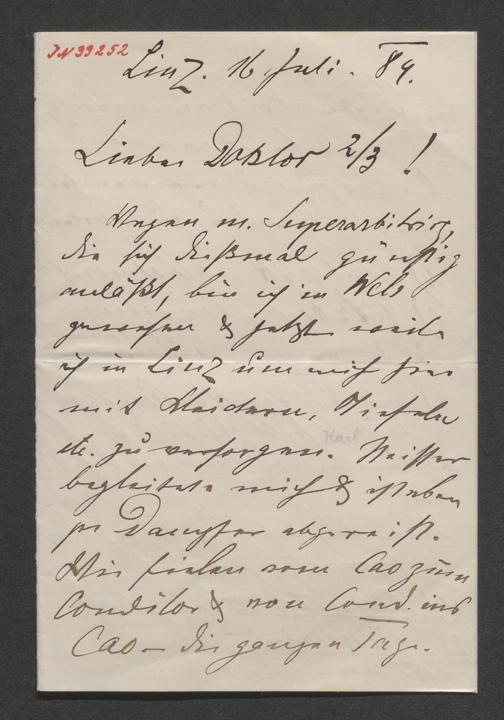 JN 39252
Linz. 16 Juli. 84.
Lieber Doktor 2/3 !
Wegen m. Superarbitrirg,
die sich dießmal günstig
anläßt, bin ich in Wels
gewesen & jetzt weile
ich in Linz um mich hier
mit Kleidern, Stiefeln
etc. zu versorgen.
Karl
begleitete mich & ist eben
per Dampfer abgereist.
Wir fielen vom Cao zum
Conditor & von Cond. ins
Cao – die ganzen Tage.